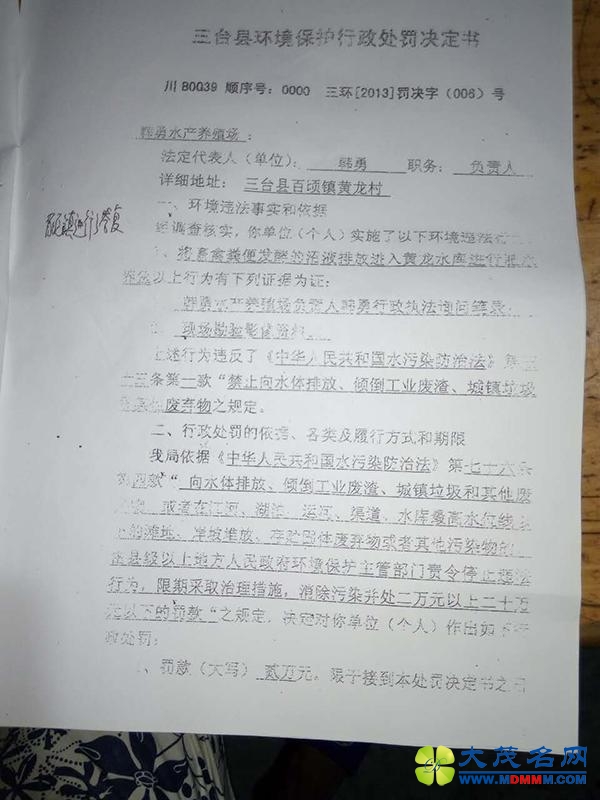 三台县环境保护行政处罚决定书
川 B0039 顺序号：0000 三环[2013]罚决字（006）号
韩勇水产养殖场：
法定代表人（单位）： 韩勇 职务： 负责人
详细地址： 三台县百顷镇黄龙村
一、环境违法事实和依据
经调查核实，你单位(个人)实施了以下环境违法行
将畜禽粪便发酵的沼液排放进入黄龙水库进行肥水
养鱼以上行为有下列证据为证：
韩勇水产养殖场负责人韩勇行政执法询问笔录；
现场勘验影像资料。
上述行为违反了《中华人民共和国水污染防治法》第三
十三条第一款“禁止向水体排放、倾倒工业废渣、城镇垃圾
废弃物之规定。
二、行政处罚的依据、各类及履行方式和期限
我局依据《中华人民共和国水污染防治法》第七十六条
第四款“ 向水体排放、倾倒工业废渣、城镇垃圾和其他废
或者在江河、湖泊、运河、渠道、水库最高水位线以
下的滩地、岸坡堆放、存贮固体废弃物或者其他污染物的，
由县级以上地方人民政府环境保护主管部门责令停止违法
行为，限期采取治理措施，消除污染并处二万元以上二十万
元以下的罚款“之规定，决定对你单位（个人）作出如下行
政处罚：
、罚款（大写） 贰万元。限于接到本处罚决定书之日
大茂名网
WWW.MDMMM.COM